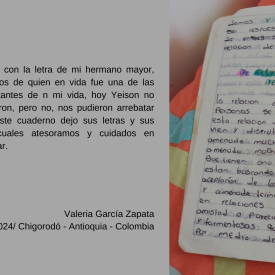 con la letra de mi hermano mayor,
os de quien en vida fue una de las
antes de n mi vida, hoy Yeison no
ron, pero no, nos pudieron arrebatar
ste cuaderno dejo sus letras y sus
cuales atesoramos y cuidados en
ar.
Valeria García Zapata
024/ Chigorodó - Antioquia - Colombia
la relacion
Personas se
esta relacion
amenudo
estan buscando
y amenudo
en relaciones
amistad o
Por medio de